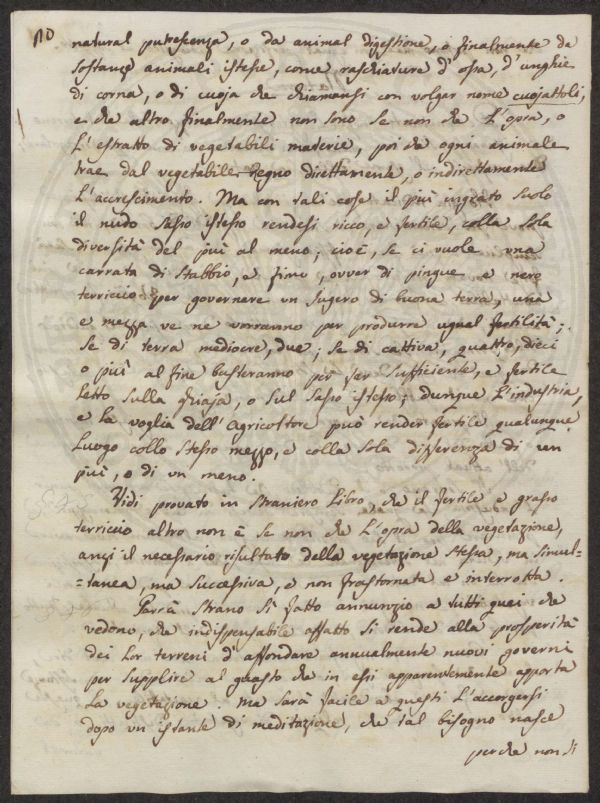 110
natural putrescenza, o da animal digestione, o finalmente da
sostanze animali istesse, come raschiature d'ossa, d'unghie
di corna, o di cuoja che chiamansi con volgar nome cuojattoli,
e che altro finalmente non sono se non che L'opra, o
L'estratto di vegetabili materie, poi che ogni animale
trae dal vegetabile Regno direttamente, o indirettamente
L'accrescimento. Ma con tali cose il più ingrato suolo
il nudo sasso istesso rendesi ricco, e fertile, colla sola
diversità del più al meno; cioè, se ci vuole una
carrata di stabbio, e fimo, ovver di pingue e nero
terriccio per governare un sugero di buona terra, una
e mezza ve ne vorranno per produrre ugual fertilità;
se di terra mediocre, due; se di cattiva, quattro, dieci
o più al fine basteranno per far sufficiente, e fertile
letto sulla ghiaja, o sul sasso istesso; dunque L'industria,
e la voglia dell'Agricoltore può render fertile qualunque
Luogo collo stesso mezzo, e colla sola differenza di un
più, o di un meno.
Vidi provato in straniero Libro, che il fertile e grasso
terriccio altro non è se non che L'opra della vegetazione,
anzi il necessario risultato della vegetazione stessa, ma simul-
-tanea, ma successiva, e non frastornata e interrotta.
Parrà strano sì fatto annunzio a tutti quei che
vedono, che indispensabile affatto si rende alla prosperità
dei Lor terreni d'affondare annualmente nuovi governi
per supplire al guasto che in essi apparentemente apporta
La vegetazione. Ma sarà facile a questi L'accorgersi
dopo un istante di meditazione, che tal bisogno nasce
perché non si